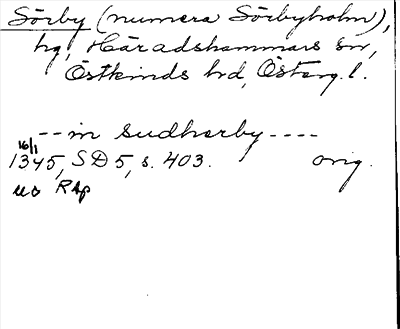 Sörby (numera Sörbyholm),
hg, Häradshammars sn,
Östkinds hd, Österg. l.
-- in sudherby ----
16/1
1345, SD 5, s. 403. orig.
uo Rap